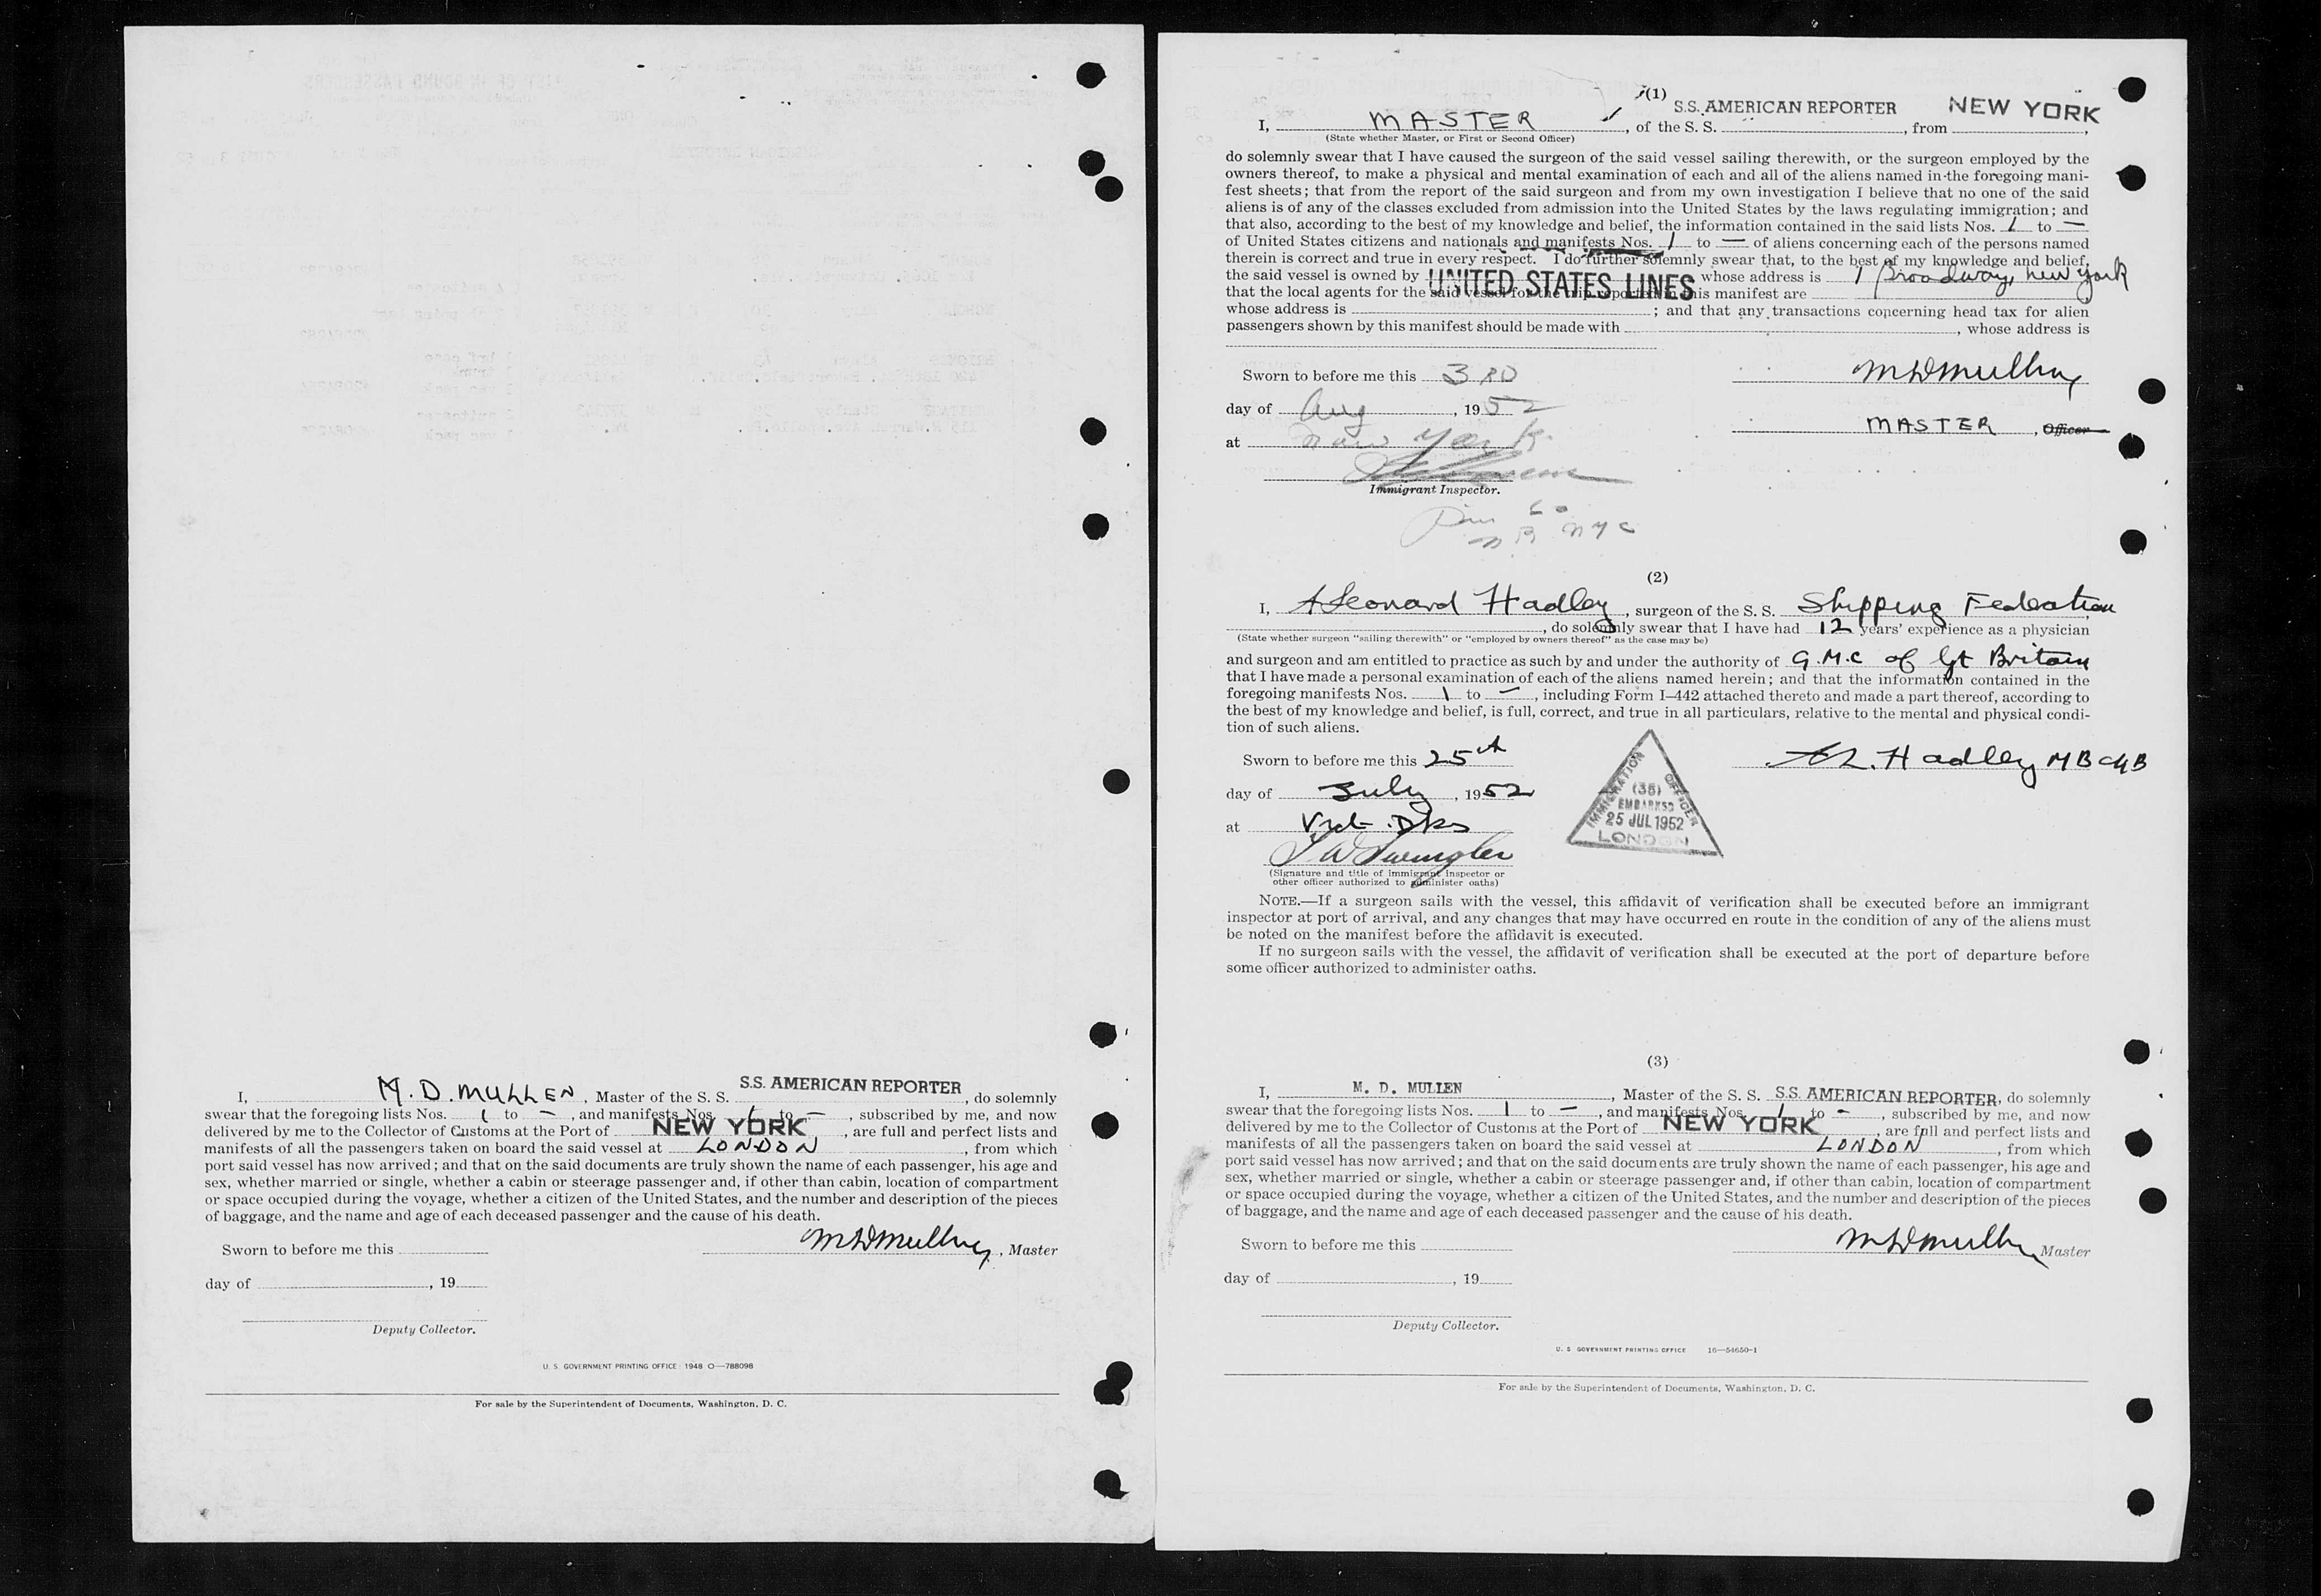 I, M. D. MULLEN, Master of the S. S. S.S. AMERICAN REPORTER, do solemnly
swear that the foregoing lists Nos. 1 to –, and manifests Nos. 1 to –, subscribed by me, and now
delivered by me to the Collector of Customs at the Port of NEW YORK, are full and perfect lists and
manifests of all the passengers taken on board the said vessel at LONDON, from which
port said vessel has now arrived; and that on the said documents are truly shown the name of each passenger, his age and
sex, whether married or single, whether a cabin or steerage passenger and, if other than cabin, location of compartment
or space occupied during the voyage, whether a citizen of the United States, and the number and description of the pieces
of baggage, and the name and age of each deceased passenger and the cause of his death.
Sworn to before me this
M D Mullen, Master
day of , 19
Deputy Collector.
U. S. GOVERNMENT PRINTING OFFICE: 1948 O—788098
For sale by the Superintendent of Documents, Washington, D. C.
(1)
I, MASTER, of the S. S. S.S. AMERICAN REPORTER, from NEW YORK,
(State whether Master, or First or Second Officer)
do solemnly swear that I have caused the surgeon of the said vessel sailing therewith, or the surgeon employed by the
owners thereof, to make a physical and mental examination of each and all of the aliens named in the foregoing mani-
fest sheets; that from the report of the said surgeon and from my own investigation I believe that no one of the said
aliens is of any of the classes excluded from admission into the United States by the laws regulating immigration; and
that also, according to the best of my knowledge and belief, the information contained in the said lists Nos. 1 to –
of United States citizens and nationals and manifests Nos. 1 to – of aliens concerning each of the persons named
therein is correct and true in every respect. I do further solemnly swear that, to the best of my knowledge and belief,
the said vessel is owned by UNITED STATES LINES whose address is 1 Broadway, New York
that the local agents for the said vessel for the trip reported in this manifest are
whose address is ; and that any transactions concerning head tax for alien
passengers shown by this manifest should be made with , whose address is
Sworn to before me this 3RD
M D Mullen
day of Aug, 1952
MASTER, Officer
at New York
Immigrant Inspector.
NYC
(2)
I, A Leonard Hadley, surgeon of the S. S. Shipping Federation
, do solemnly swear that I have had 12 years' experience as a physician
(State whether surgeon "sailing therewith" or "employed by owners thereof" as the case may be)
and surgeon and am entitled to practice as such by and under the authority of G.M.C of Gt Britain
that I have made a personal examination of each of the aliens named herein; and that the information contained in the
foregoing manifests Nos. 1 to –, including Form I–442 attached thereto and made a part thereof, according to
the best of my knowledge and belief, is full, correct, and true in all particulars, relative to the mental and physical condi-
tion of such aliens.
Sworn to before me this 25th
A L. Hadley MB ChB
day of July, 1952
at Vict. Dks
IMMIGRATION OFFICER
(35)
EMBARKED
25 JUL 1952
LONDON
(Signature and title of immigrant inspector or
other officer authorized to administer oaths)
NOTE.—If a surgeon sails with the vessel, this affidavit of verification shall be executed before an immigrant
inspector at port of arrival, and any changes that may have occurred en route in the condition of any of the aliens must
be noted on the manifest before the affidavit is executed.
If no surgeon sails with the vessel, the affidavit of verification shall be executed at the port of departure before
some officer authorized to administer oaths.
(3)
I, M. D. MULLEN, Master of the S. S. S.S. AMERICAN REPORTER, do solemnly
swear that the foregoing lists Nos. 1 to –, and manifests Nos. 1 to –, subscribed by me, and now
delivered by me to the Collector of Customs at the Port of NEW YORK, are full and perfect lists and
manifests of all the passengers taken on board the said vessel at LONDON, from which
port said vessel has now arrived; and that on the said documents are truly shown the name of each passenger, his age and
sex, whether married or single, whether a cabin or steerage passenger and, if other than cabin, location of compartment
or space occupied during the voyage, whether a citizen of the United States, and the number and description of the pieces
of baggage, and the name and age of each deceased passenger and the cause of his death.
Sworn to before me this
M D Mullen Master
day of , 19
Deputy Collector.
U. S GOVERNMENT PRINTING OFFICE 16—54650-1
For sale by the Superintendent of Documents, Washington, D. C.